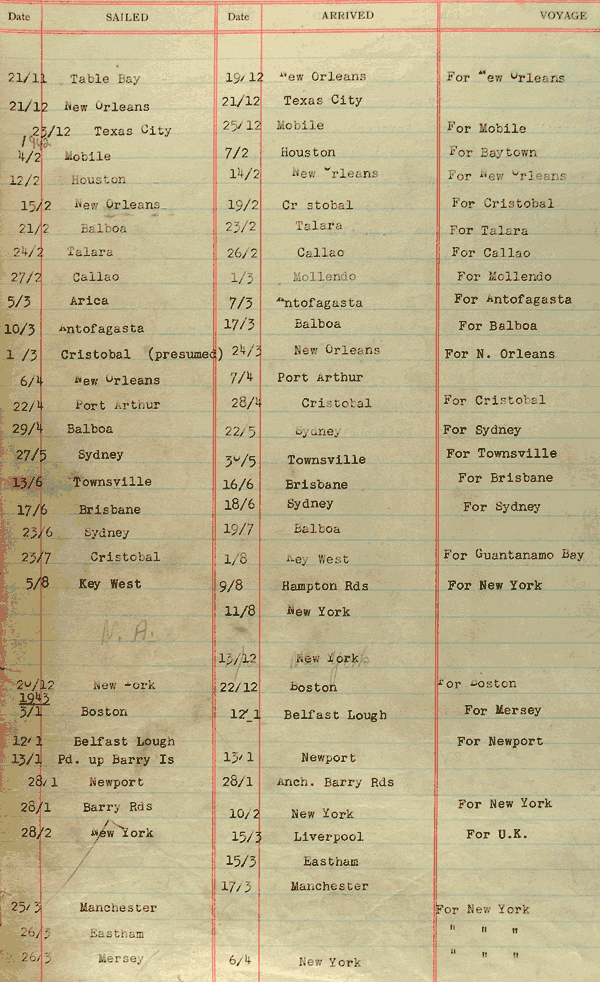 Date SAILED Date ARRIVED VOYAGE
21/11 Table Bay 19/12 New Orleans For New Orleans
21/12 New Orleans 21/12 Texas City
23/12 Texas City 25/12 Mobile For Mobile
1942
4/2 Mobile 7/2 Houston For Baytown
12/2 Houston 14/2 New Orleans For New Orleans
15/2 New Orleans 19/2 Cr stobal For Cristobal
21/2 Balboa 23/2 Talara For Talara
24/2 Talara 26/2 Callao For Callao
27/2 Callao 1/3 Mollendo For Mollendo
5/3 Arica 7/3 Antofagasta For Antofagasta
10/3 Antofagasta 17/3 Balboa For Balboa
1 /3 Cristobal (presumed) 24/3 New Orleans For N. Orleans
6/4 New Orleans 7/4 Port Arthur
22/4 Port Arthur 28/4 Cristobal For Cristobal
29/4 Balboa 22/5 Sydney For Sydney
27/5 Sydney 30/5 Townsville For Townsville
13/6 Townsville 16/6 Brisbane For Brisbane
17/6 Brisbane 18/6 Sydney For Sydney
23/6 Sydney 19/7 Balboa
23/7 Cristobal 1/8 Key West For Guantanamo Bay
5/8 Key West 9/8 Hampton Rds For New York
11/8 New York
N.A.
13/12 New York
20/12 New York 22/12 Boston For Boston
1943
3/1 Boston 12 1 Belfast Lough For Mersey
12/1 Belfast Lough For Newport
13/1 Pd. up Barry Is 13/1 Newport
28/1 Newport 28/1 Anch. Barry Rds
28/1 Barry Rds 10/2 New York For New York
28/2 New York 15/3 Liverpool For U.K.
15/3 Eastham
17/3 Manchester
25/3 Manchester For New York
26/3 Eastham " " "
26/3 Mersey 6/4 New York " " "